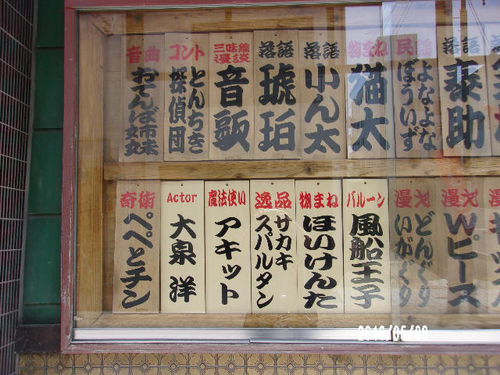 音曲
おてんば姉妹
コント
とんちき
探偵団
三味線
漫談
音瓢
落語
琥珀
落語
小ん太
物まね
猫太
民謡
よなよな
ぼういず
落語
泰助
奇術
ペペとチン
Actor
大泉 洋
魔法使い
アキット
逸品
サカキ
スパルタン
物まね
ほいけんた
バルーン
風船王子
漫才
どんぐり
いがぐり
漫才
Wピース